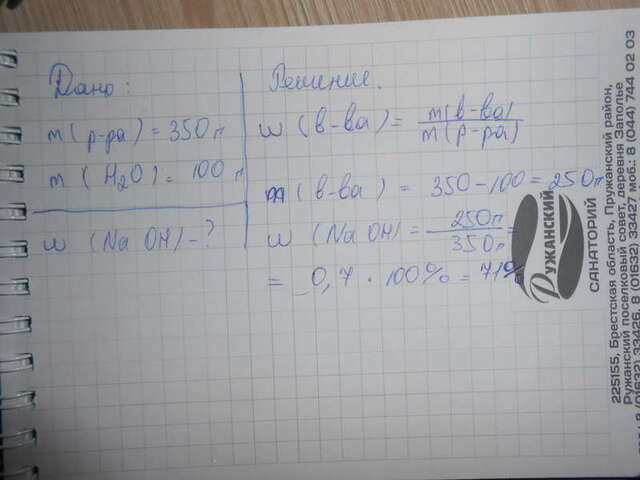 Дано:
m (р-ра) = 350 г
m (H₂O) = 100 г
w (NaOH) - ?
Решение.
w (в-ва) = m(в-ва) / m(р-ра)
m (в-ва) = 350 - 100 = 250 г
w (NaOH) = 250 г / 350 г =
= 0,7 · 100% = 71%
РУЖАНСКИЙ
САНАТОРИЙ
225155, Брестская область, Пружанский район,
Ружанский поселковый совет, деревня Заполье
8 (01632) 33426, 8 (01632) 33427 моб.: 8 (044) 744 02 03